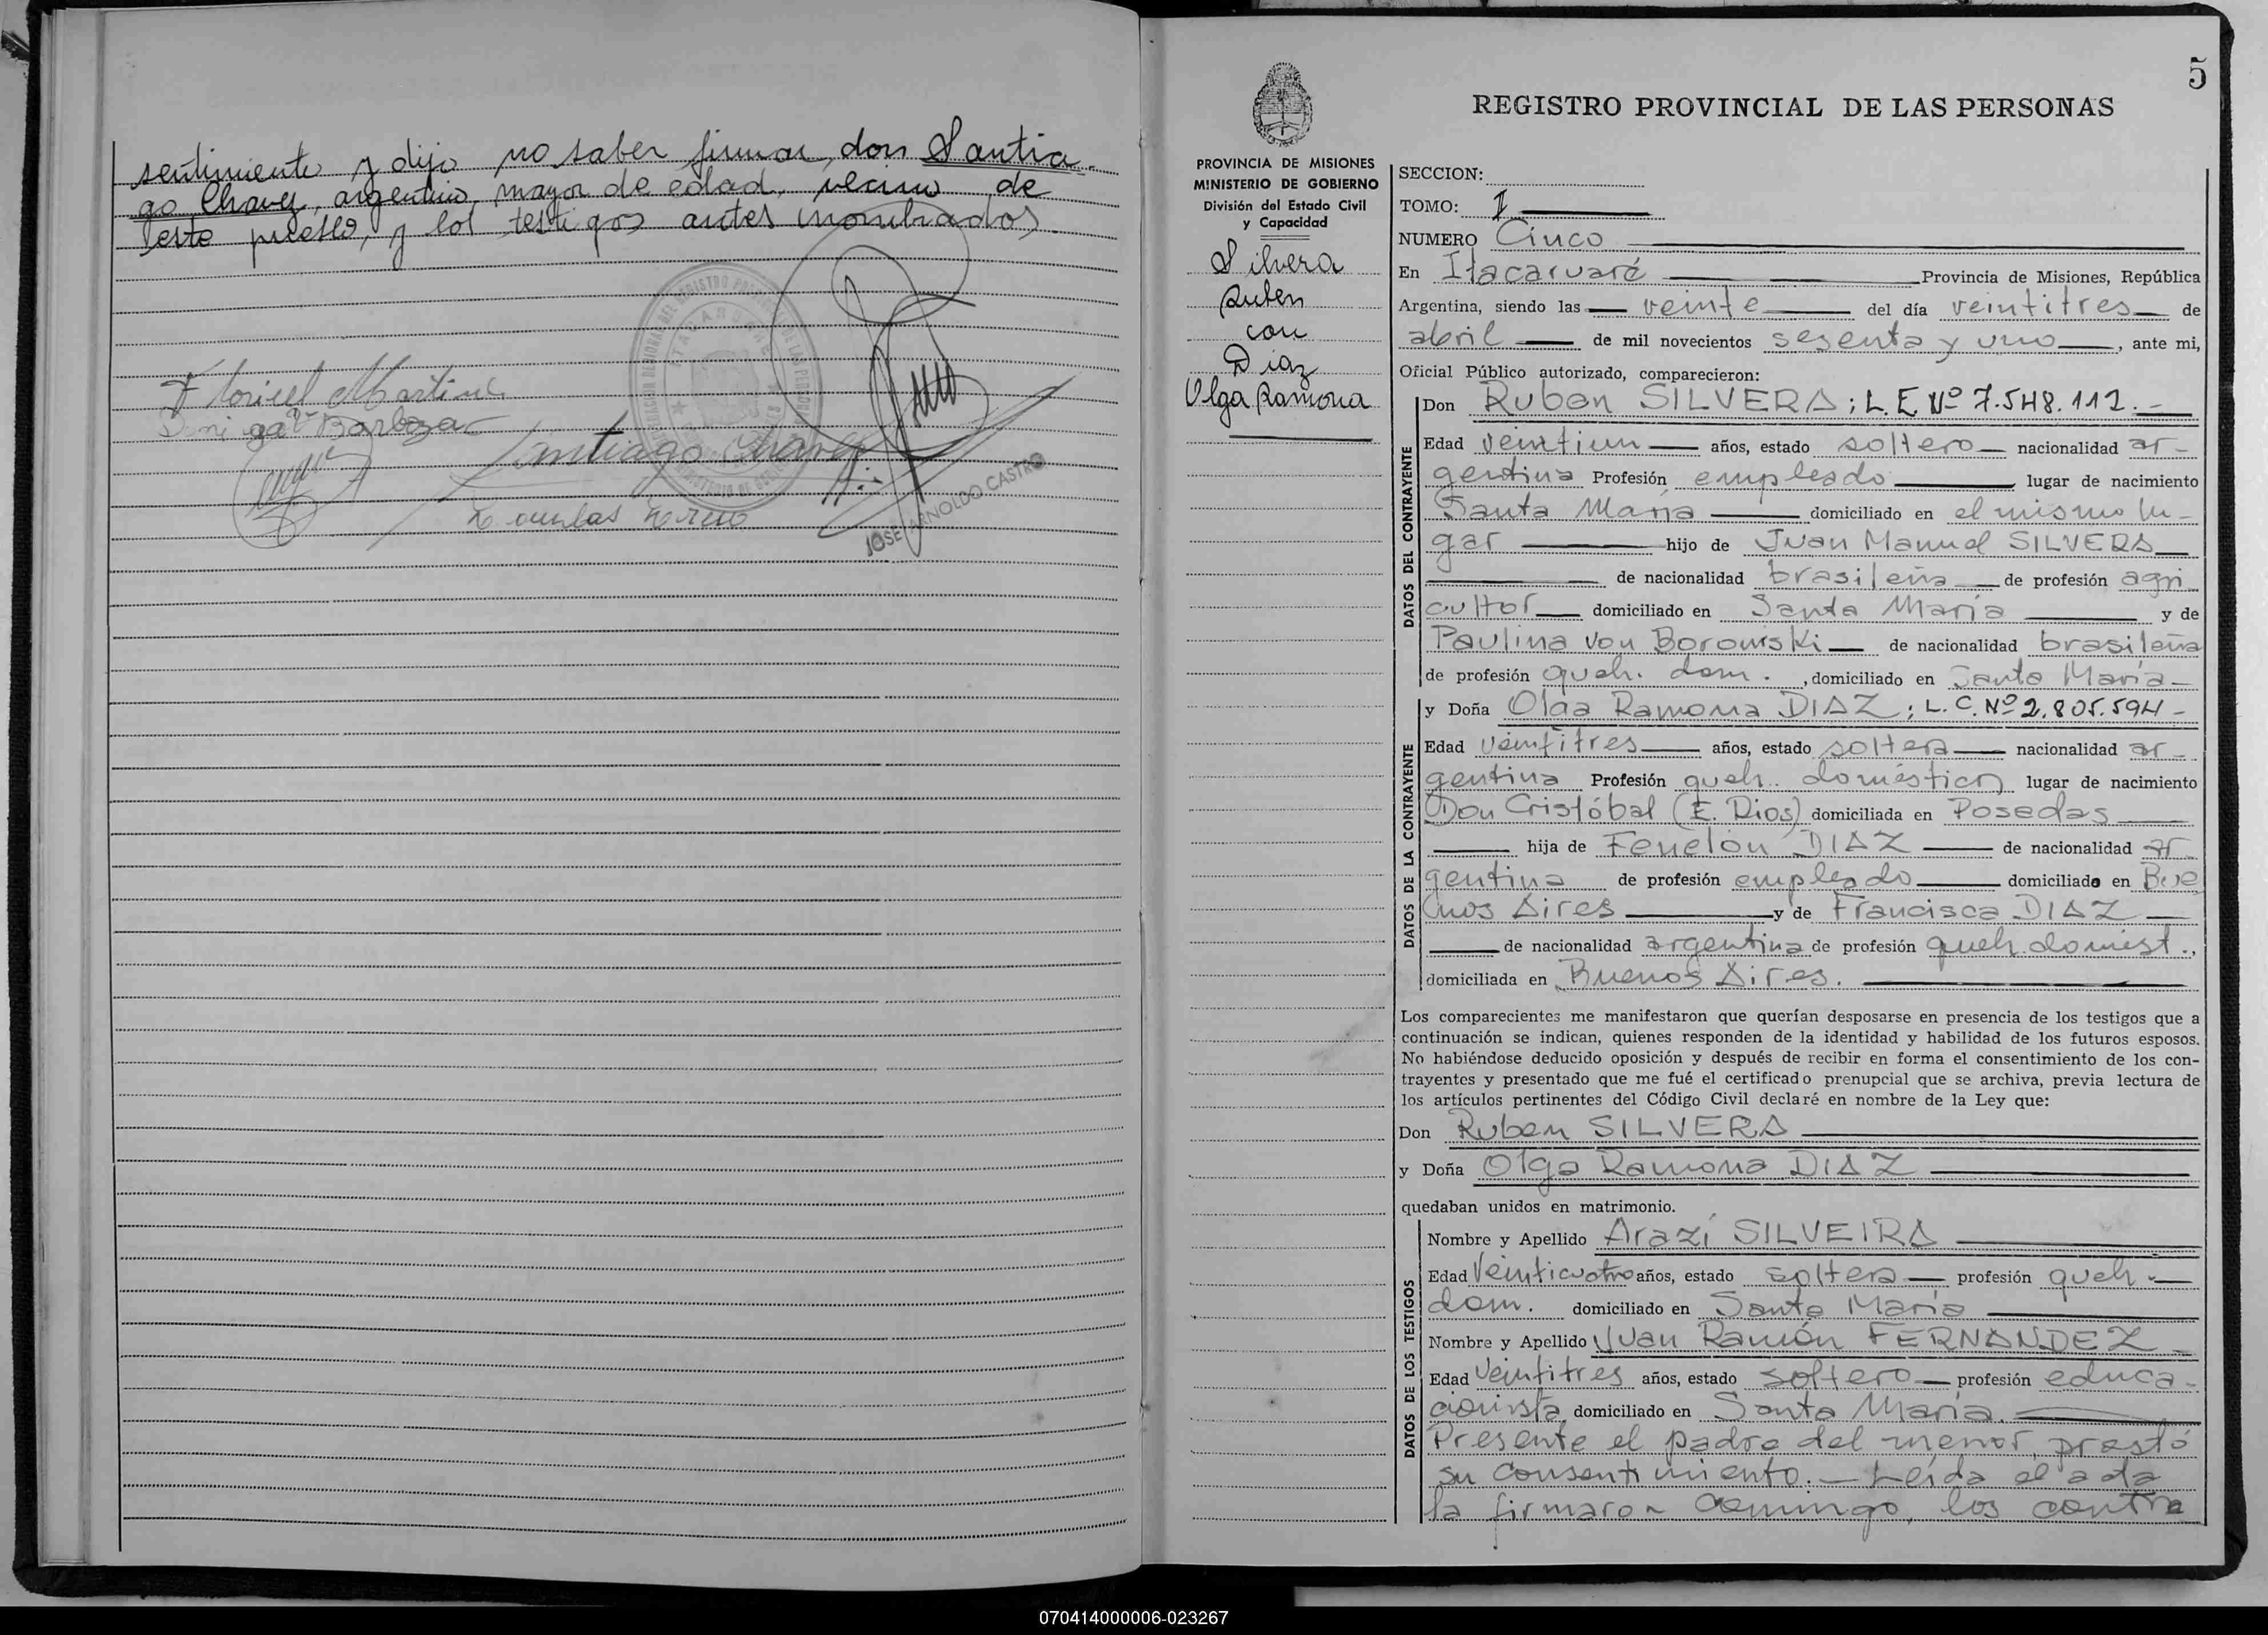 sentimiento y dijo no saber firmar, don Santia-
go Chavez, argentino, mayor de edad, vecino de
este pueblo, y los testigos antes nombrados.
Floricel Martinez
Barboza
Santiago Chavez
JOSE ARNOLDO CASTRO
5
REGISTRO PROVINCIAL DE LAS PERSONAS
PROVINCIA DE MISIONES
MINISTERIO DE GOBIERNO
División del Estado Civil
y Capacidad
Silvera
Ruben
con
Diaz
Olga Ramona
SECCION:
TOMO: I
NUMERO Cinco
En Itacaruaré Provincia de Misiones, República
Argentina, siendo las veinte del día veintitres de
abril de mil novecientos sesenta y uno, ante mi,
Oficial Público autorizado, comparecieron:
DATOS DEL CONTRAYENTE
Don Ruben SILVERA; L.E Nº 7.548.112.-
Edad veintiun años, estado soltero nacionalidad ar-
gentina Profesión empleado lugar de nacimiento
Santa María domiciliado en el mismo lu-
gar hijo de Juan Manuel SILVERA
de nacionalidad brasileña de profesión agri-
cultor domiciliado en Santa María y de
Paulina von Borowski de nacionalidad brasileña
de profesión queh. dom. , domiciliado en Santa María-
DATOS DE LA CONTRAYENTE
y Doña Olga Ramona DIAZ; L.C. Nº 2.805.594-
Edad veintitres años, estado soltera nacionalidad ar-
gentina Profesión queh. doméstico lugar de nacimiento
Don Cristóbal (E. Rios) domiciliada en Posadas
hija de Fenelón DIAZ de nacionalidad ar-
gentina de profesión empleado domiciliado en Bue
nos Aires y de Francisca DIAZ
de nacionalidad argentina de profesión queh. domést.,
domiciliada en Buenos Aires.
Los comparecientes me manifestaron que querían desposarse en presencia de los testigos que a
continuación se indican, quienes responden de la identidad y habilidad de los futuros esposos.
No habiéndose deducido oposición y después de recibir en forma el consentimiento de los con-
trayentes y presentado que me fué el certificado prenupcial que se archiva, previa lectura de
los artículos pertinentes del Código Civil declaré en nombre de la Ley que:
Don Ruben SILVERA
y Doña Olga Ramona DIAZ
quedaban unidos en matrimonio.
DATOS DE LOS TESTIGOS
Nombre y Apellido Arazí SILVEIRA
Edad Veinticuatro años, estado soltera profesión queh.
dom. domiciliado en Santa María
Nombre y Apellido Juan Ramón FERNANDEZ
Edad Veintitres años, estado soltero profesión educa-
cionista domiciliado en Santa María.
Presente el padre del menor, prestó
su consentimiento.- Leída el acta
la firmaron conmigo, los contra
070414000006-023267